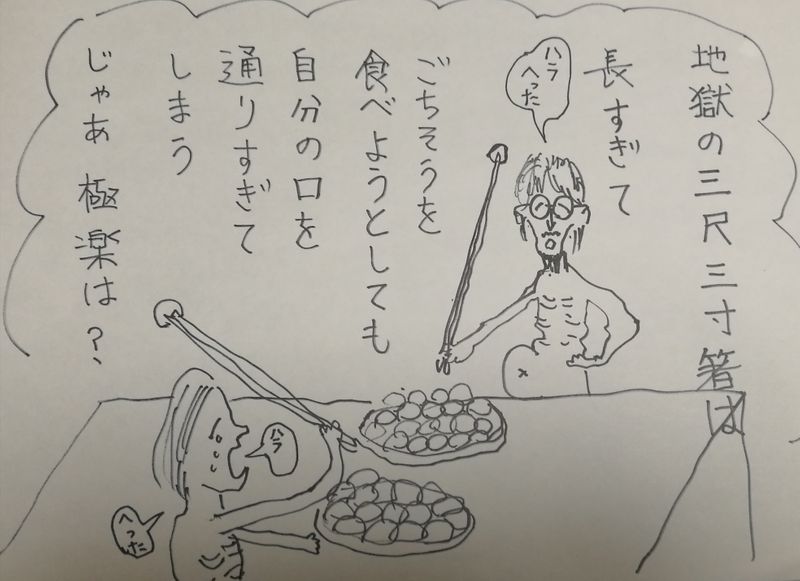 地獄の三尺三寸箸は
長すぎて
ごちそうを
食べようとしても
自分の口を
通りすぎて
しまう
じゃあ 極楽は?
ハラ
へった
ハラ
へった